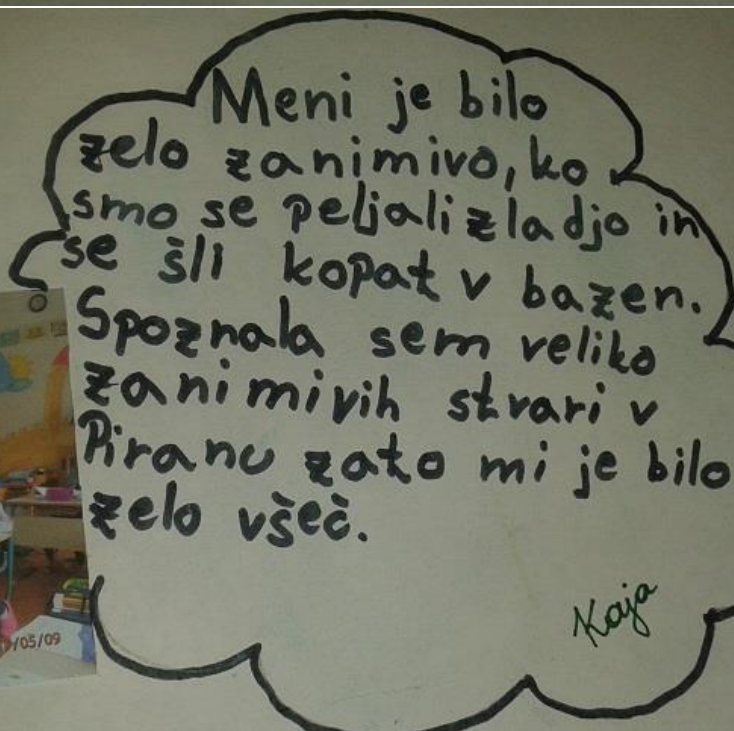 Meni je bilo
zelo zanimivo, ko
smo se peljali z ladjo in
se šli kopat v bazen.
Spoznala sem veliko
zanimivih stvari v
Piranu zato mi je bilo
zelo všeč.
Kaja
/05/09